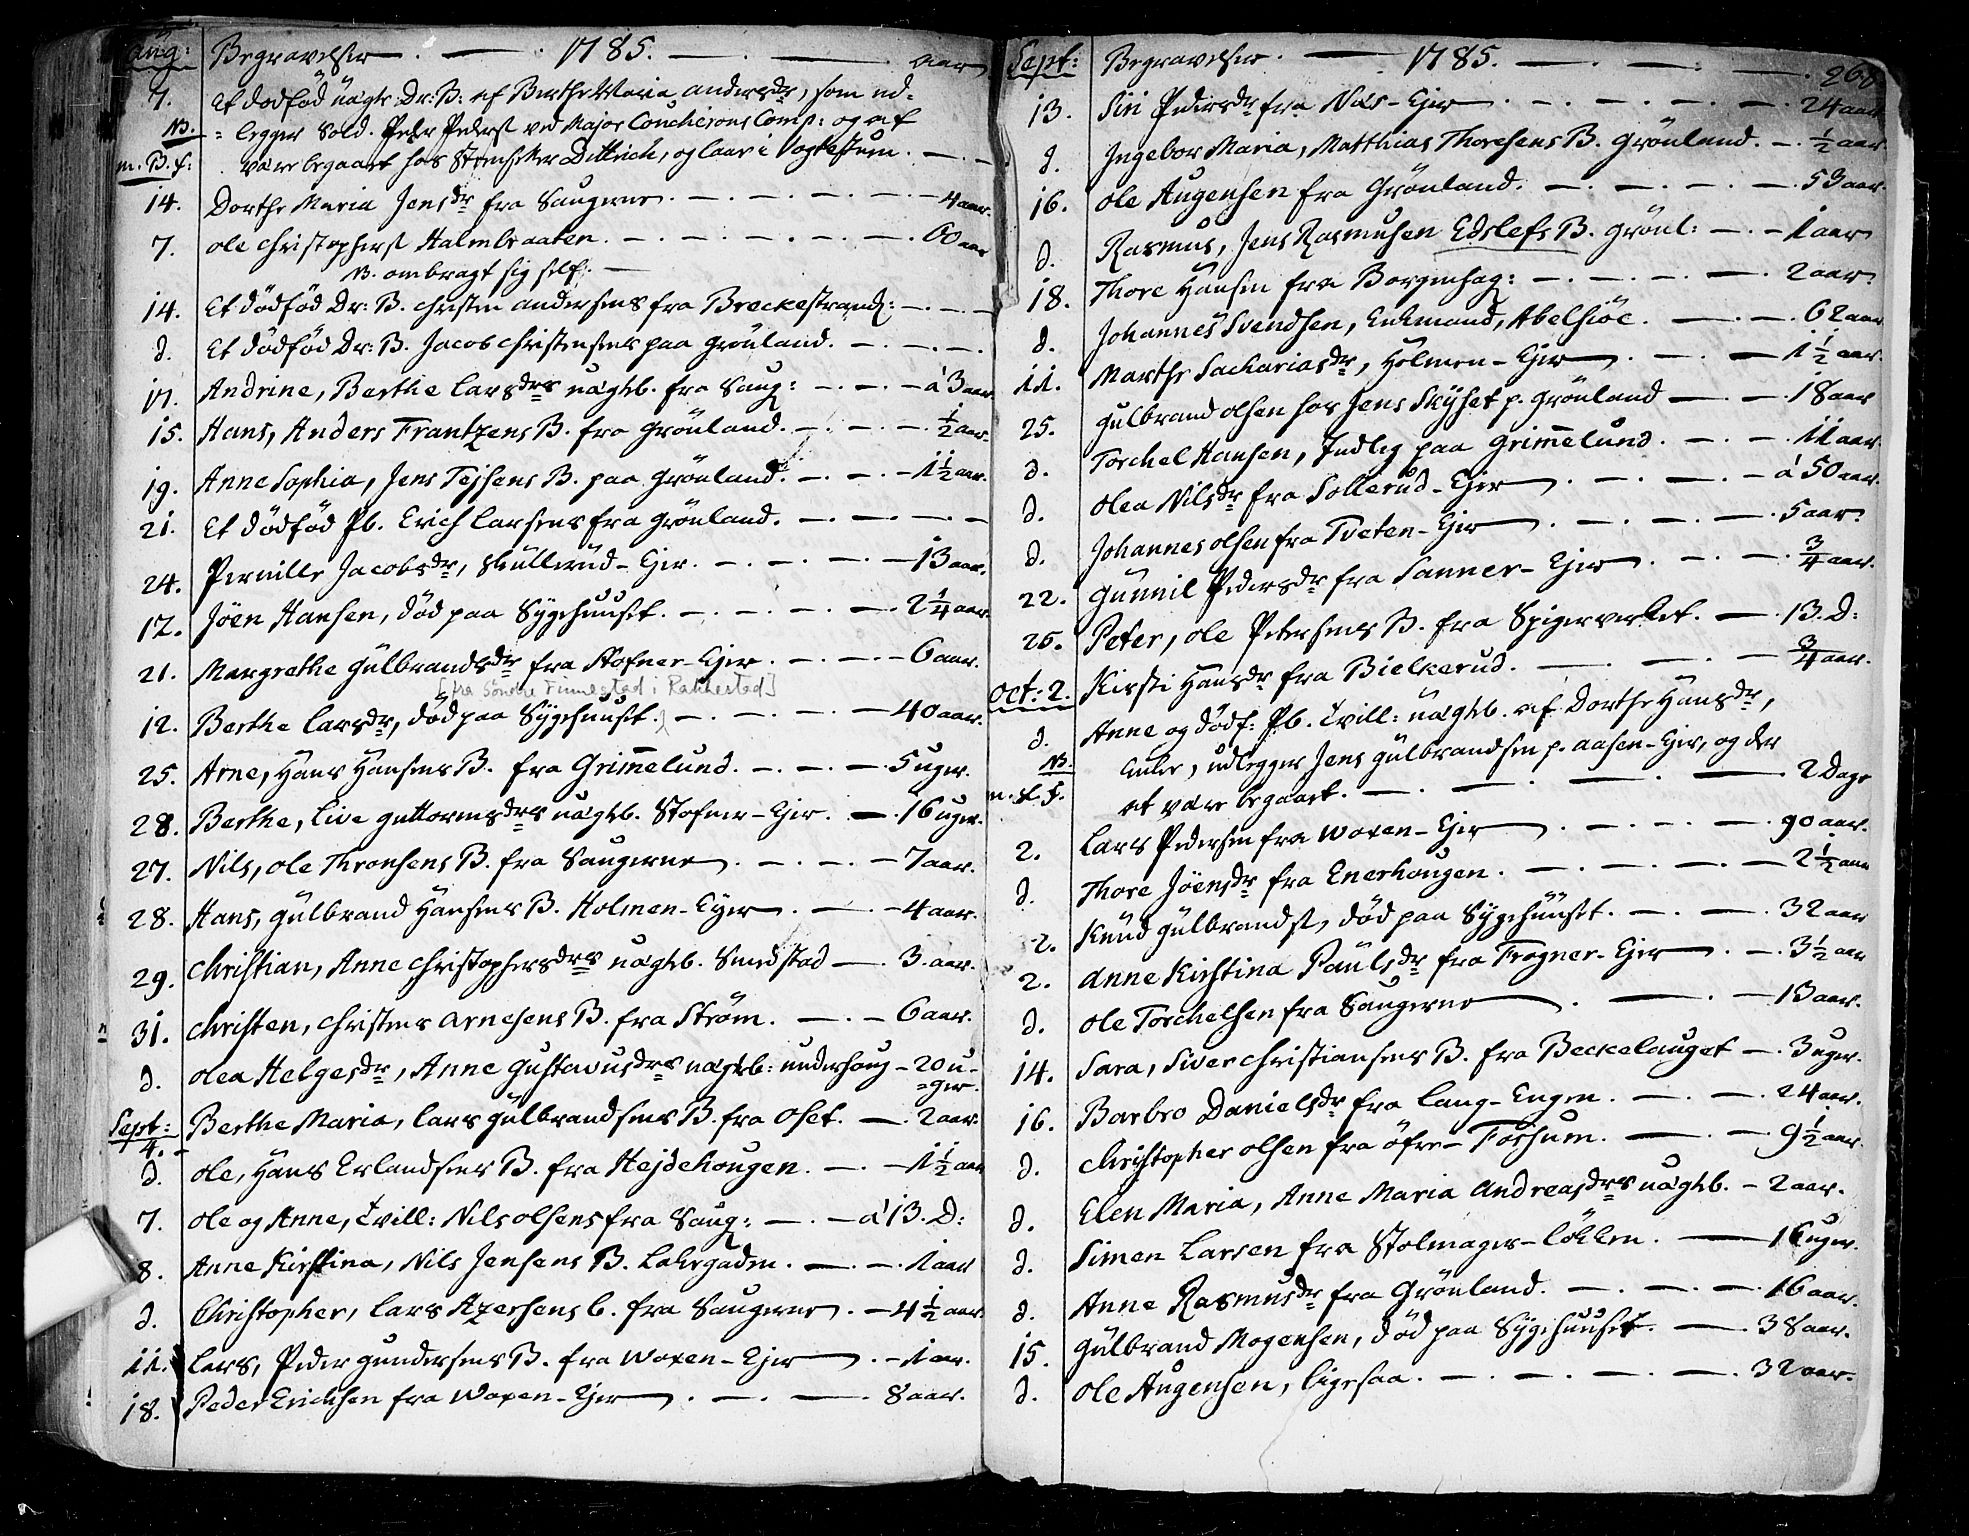 Aug: Begravelser. — 1785. — aar
7. Et dödfød uægte Dr: B: af Berthe Maria Andersdr, som ud-
NB. = legger Sold. Peder Peders ved Major Coucherons Comp: og at
m. B. f. være begaaet hos Dittrich, og laae i Vogtestuen. —
14. Dorthe Maria Jensdr fra Saugerne. — 4 aar.
7. Ole Christophers Halmbraaten. — 60 aar
NB. ombragt sig self. —
14. Et dödfød Dr: B. Christen Andersens fra Breckestrand: —
d. Et dödfød Dr: B. Jacob Christensens paa Grönland. —
17. Andrine, Berthe Larsdrs uægtb. fra Saug: — á 3 aar
15. Hans, Anders Frantzens B. fra Grönland. — ½ aar.
19. Anne Sophia, Jens Tejsens B. paa Grönland. — 1½ aar.
21. Et dödfød Pb. Erich Larsens fra Grönland. —
24. Pernille Jacobsdr, Skullerud-Ejer. — 13 aar.
12. Jöen Hansen, död paa Sygehuuset. — 2¼ aar
21. Margrethe Gulbrandsdr fra Stofner-Ejer. — 6 aar.
[fra Söndre Finnestad i Rakkestad]
12. Berthe Larsdr, död paa Sygehuuset. — 40 aar.
25. Arne, Hans Hansens B. fra Grimelund. — 5 uger.
28. Berthe, Live Guttormsdrs uægtb. Stofner-Ejer. — 16 uger.
27. Nils, Ole Thronsens B. fra Saugerne. — 7 aar.
28. Hans, Gulbrand Hansens B. Holmen-Ejer. — 4 aar.
29. Christian, Anne Christophersdrs uægtb. Smedstad — 3 aar.
31. Christen, Christens Arnesens B. fra Ström. — 6 aar.
d. Olea Helgesdr, Anne Gustavusdrs uægtb: underhoug — 20 u-
=ger.
Sept: 4. Berthe Maria, Lars Gulbrandsens B. fra Oset. — 2 aar.
d. Ole, Hans Erlandsens B. fra Hejdehougen. — 1½ aar
7. Ole og Anne, Tvill: Nils Olsens fra Saug: — á 13. D:
8. Anne Kirstina, Nils Jensens B. Lakegaden. — 1 aar
d. Christopher, Lars Azersens b. fra Saugerne. — 4½ aar.
11. Lars, Peder Gundersens B. fra Woxen-Ejer. — 1 aar.
18. Peder Erichsen fra Woxen-Ejer. — 8 aar.
Sept: Begravelser. — 1785. — 260
13. Siri Pedersdr fra Næs-Ejer. — 24 aar
d. Ingebor Maria, Matthias Thoresens B. Grönland. — ½ aar.
16. Ole Augensen fra Grönland. — 53 aar.
d. Rasmus, Jens Rasmusen Edslefs B. Grönl: — 1 aar
18. Thore Hansen fra Borgenhag: — 2 aar
d. Johannes Svendsen, Enkemand, Abelsiöe. — 62 aar
11. Marthe Sachariasdr, Holmen-Ejer. — 1½ aar.
25. Gulbrand Olsen hos Jens Skyset p. Grönland — 18 aar
d. Torchel Hansen, Indleg paa Grimelund. — 11 aar.
d. Olea Nilsdr fra Sollerud-Ejer. — á 50 aar.
d. Johannes Olsen fra Tveten-Ejer. — 5 aar.
22. Gunnil Pedersdr fra Sanner-Ejer. — ¾ aar.
25. Peter, Ole Petersens B. fra Spigerverket. — 13. D:
Oct: 2. Kirsti Hansdr fra Bielkerud. — ¾ aar.
d. Anne og dödf: Pb. Tvill: uægtb. af Dorthe Hansdr,
NB. Enke, udlegger Jens Gulbrandsen p. Aasen-Ejer, og der
at være begaaet. — 2 Dage
2. Lars Pedersen fra Woxen-Ejer. — 90 aar.
d. Thore Jöensdr fra Enerhougen. — 2½ aar
2. Knud Gulbrands, död paa Sygehuuset. — 32 aar
2. Anne Kirstina Paulsdr fra Frogner-Ejer. — 3½ aar
d. Ole Torchelsen fra Saugerne. — 13 aar.
14. Sara, Siver Christiansens B. fra Beckelauget — 3 uger.
16. Barbro Danielsdr fra Lang-Engen. — 24 aar.
d. Christopher Olsen fra Öfre-Fossum. — 9½ aar.
d. Elen Maria, Anne Maria Andreasdrs uægtb. — 2 aar.
d. Simen Larsen fra Stolmager-Lökken. — 16 uger.
d. Anne Rasmusdr fra Grönland. — 16 aar.
15. Gulbrand Mogensen, död paa Sygehuuset. — 38 aar.
d. Ole Augensen, ligesaa. — 32 aar.